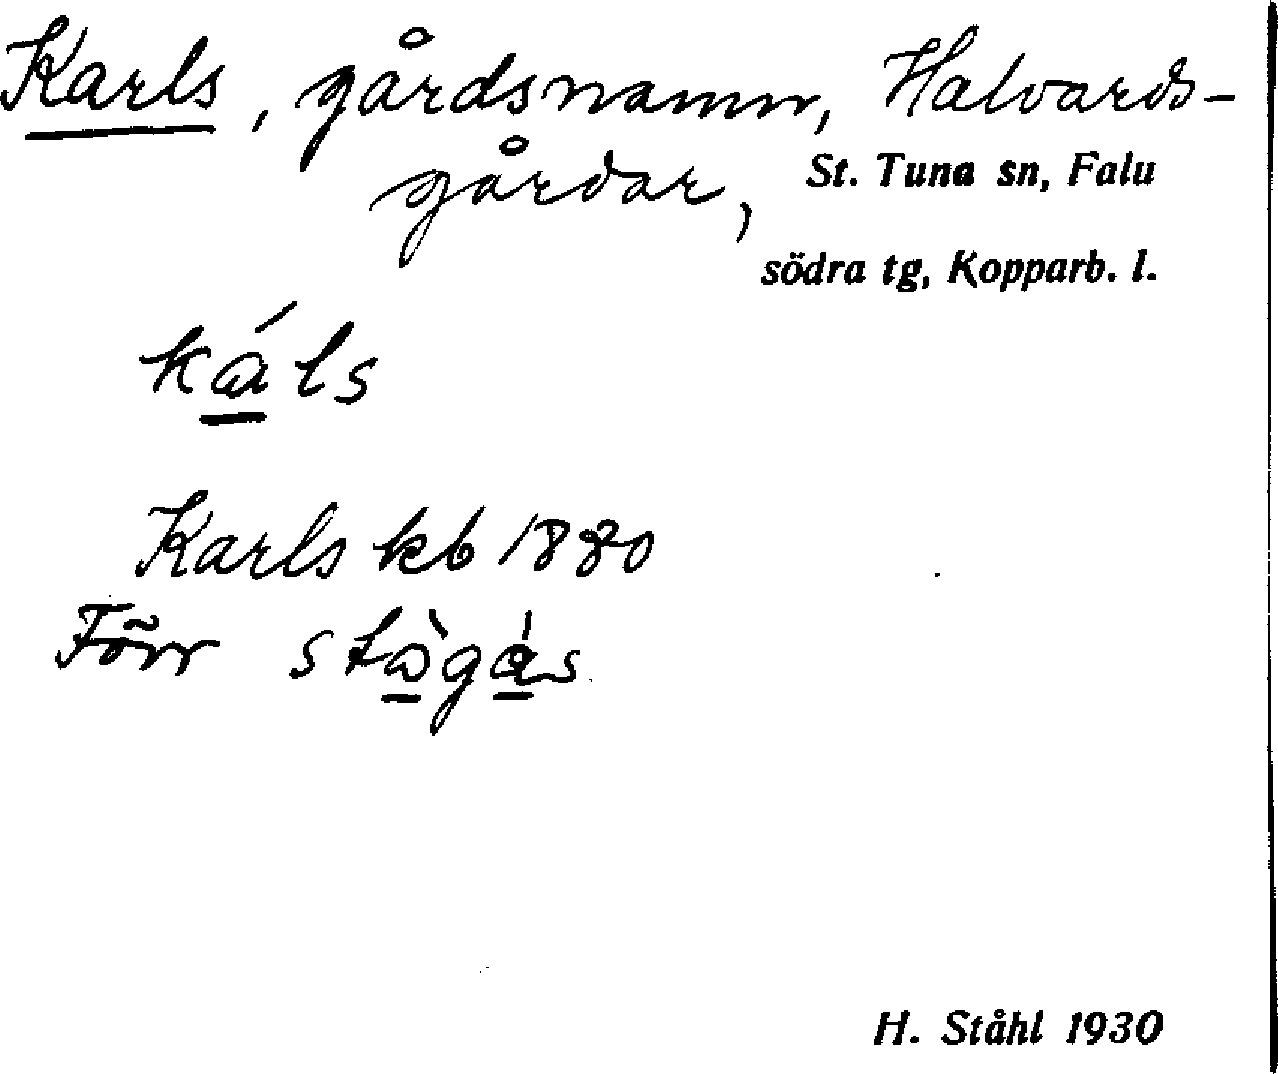 Karls, gårdsnamn, Halvards-
gårdar, St. Tuna sn, Falu
södra tg, Kopparb. l.
káls
Karls kb 1880
Förr stàgás
H. Ståhl 1930